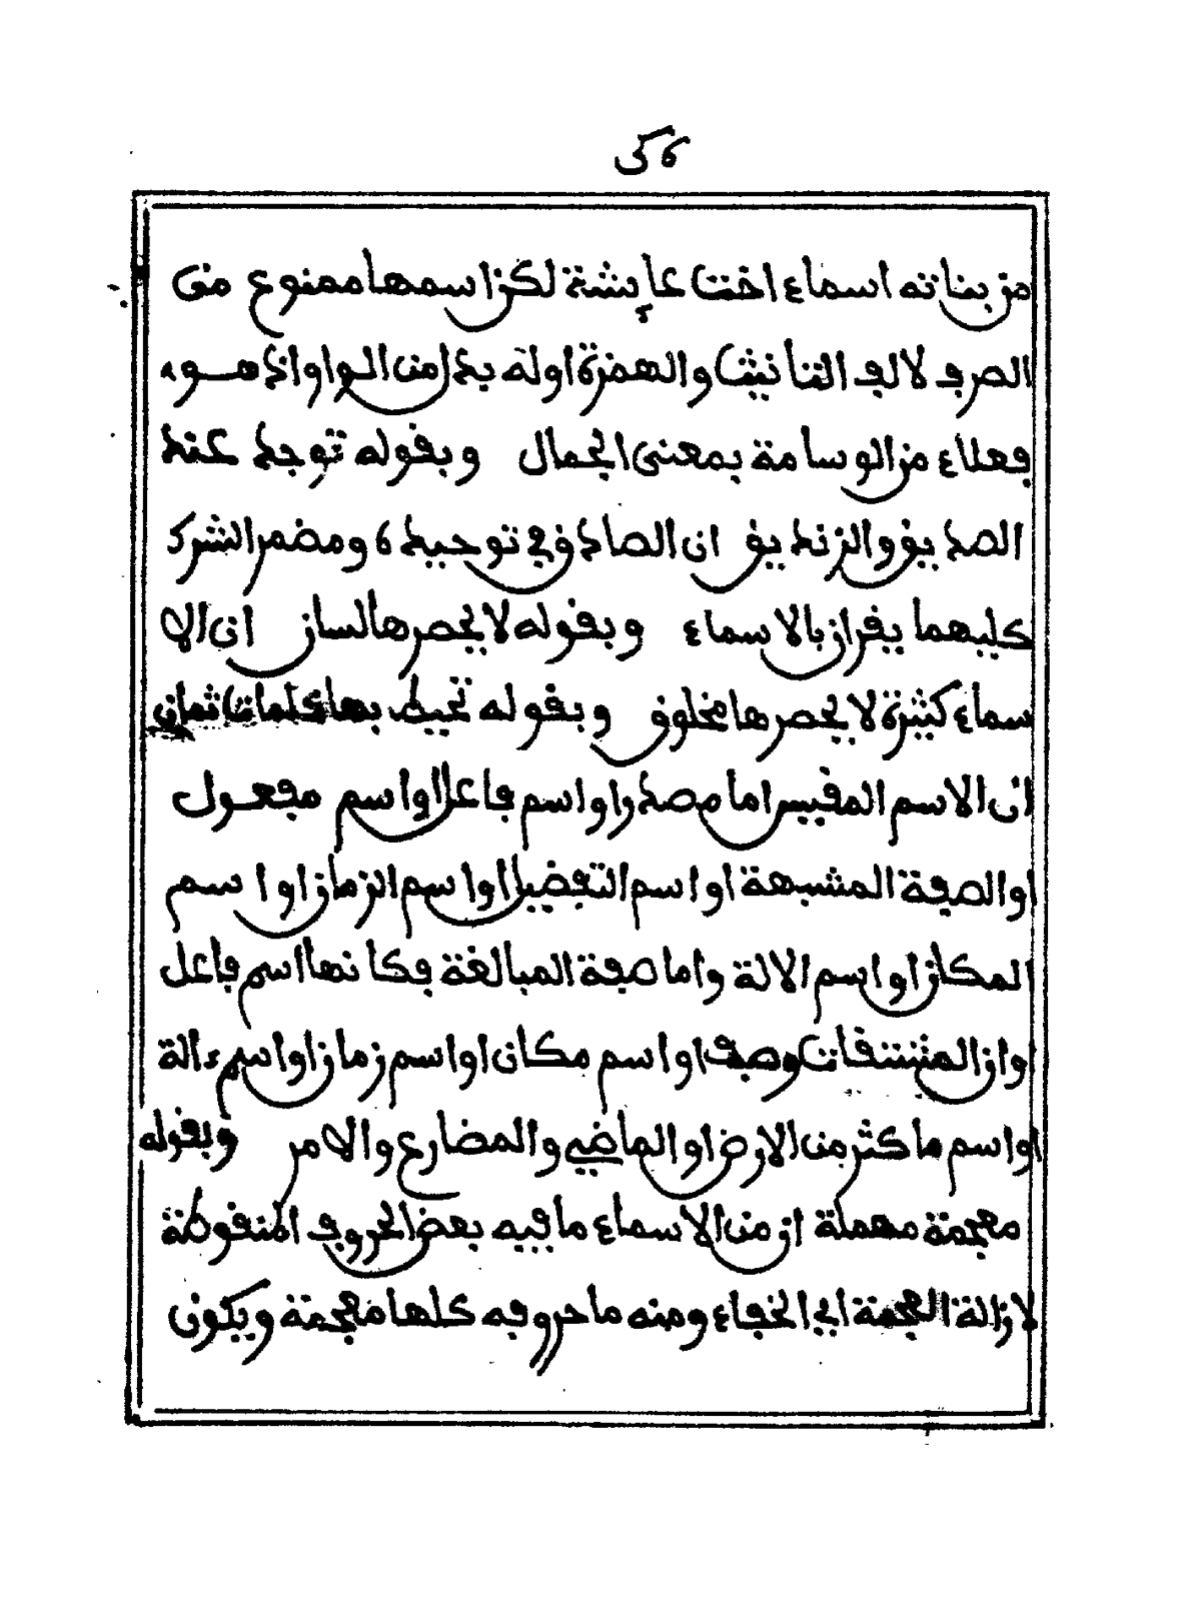 من بناته اسماء اخت عايشة لكن اسمها ممنوع من
الصرف لالف التانيث والهمزة اوله بدل من الواو اذ هو
فعلاء من الوسامة بمعنى الجمال وبقوله توجد عند
الصديق والزنديق ان الصادق في توحيده ومضمر الشرك
كليهما يقران بالاسماء وبقوله لا يحصرها لسان ان الا
سماء كثيرة لا يحصرها مخلوق وبقوله تحيط بها كلمات ثمان
ان الاسم المقيس اما مصدر او اسم فاعل او اسم مفعول
او الصفة المشبهة او اسم التفضيل او اسم الزمان او اسم
المكان او اسم الالة واما صفة المبالغة فكانها اسم فاعل
او ان المشتقات وصف او اسم مكان او اسم زمان او اسم ءالة
او اسم ما كثر من الارض او الماضي والمضارع والامر وبقوله
معجمة مهملة ان من الاسماء ما فيه بعض الحروف المنقوطة
لازالة العجمة اي الخفاء ومنه ما حروفه كلها معجمة ويكون